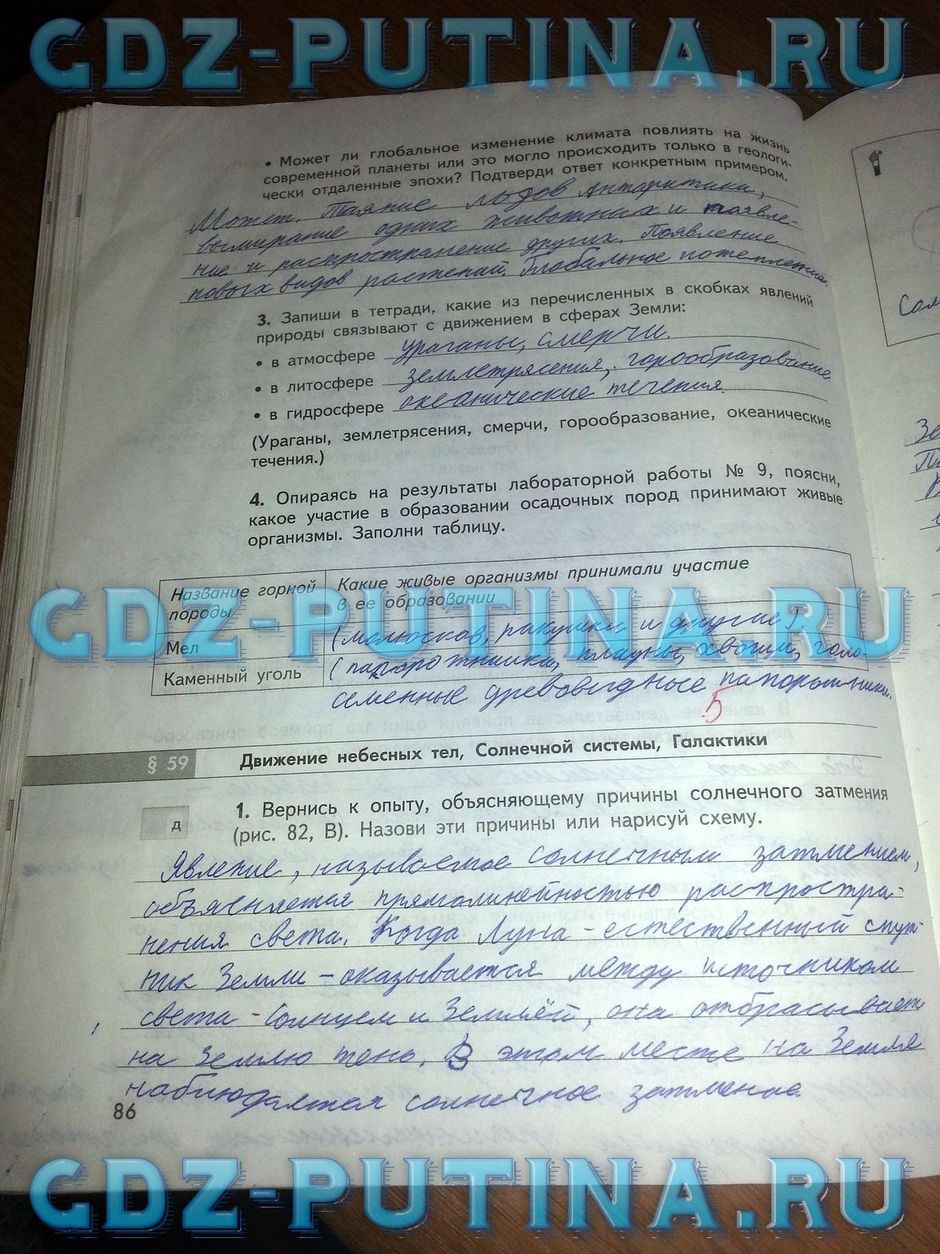 GDZ-PUTINA.RU
• Может ли глобальное изменение климата повлиять на жизнь
современной планеты или это могло происходить только в геологи-
чески отдаленные эпохи? Подтверди ответ конкретным примером.
Может. Таяние льдов Антарктики,
вымирание одних животных и появле-
ние и распространение других. Появление
новых видов растений. Глобальное потепление.
3. Запиши в тетради, какие из перечисленных в скобках явлений
природы связывают с движением в сферах Земли:
• в атмосфере ураганы, смерчи.
• в литосфере землетрясения, горообразование.
• в гидросфере океанические течения.
(Ураганы, землетрясения, смерчи, горообразование, океанические
течения.)
4. Опираясь на результаты лабораторной работы № 9, поясни,
какое участие в образовании осадочных пород принимают живые
организмы. Заполни таблицу.
Название горной породы
Какие живые организмы принимали участие
в ее образовании
GDZ-PUTINA.RU
Мел
(молюсков, ракушки и другие)
Каменный уголь
(папоротники, плауны, хвощи, голо-
семенные древовидные папоротники.
5
§ 59
Движение небесных тел, Солнечной системы, Галактики
д
1. Вернись к опыту, объясняющему причины солнечного затмения
(рис. 82, В). Назови эти причины или нарисуй схему.
Явление, называемое солнечным затмением,
объясняется прямолинейностью распростра-
нения света. Когда Луна - естественный спут-
ник Земли - оказывается между источником
света - Солнцем и Землёй, она отбрасывает
на Землю тень. В этом месте на Земле
наблюдается солнечное затмение.
86
GDZ-PUTINA.RU